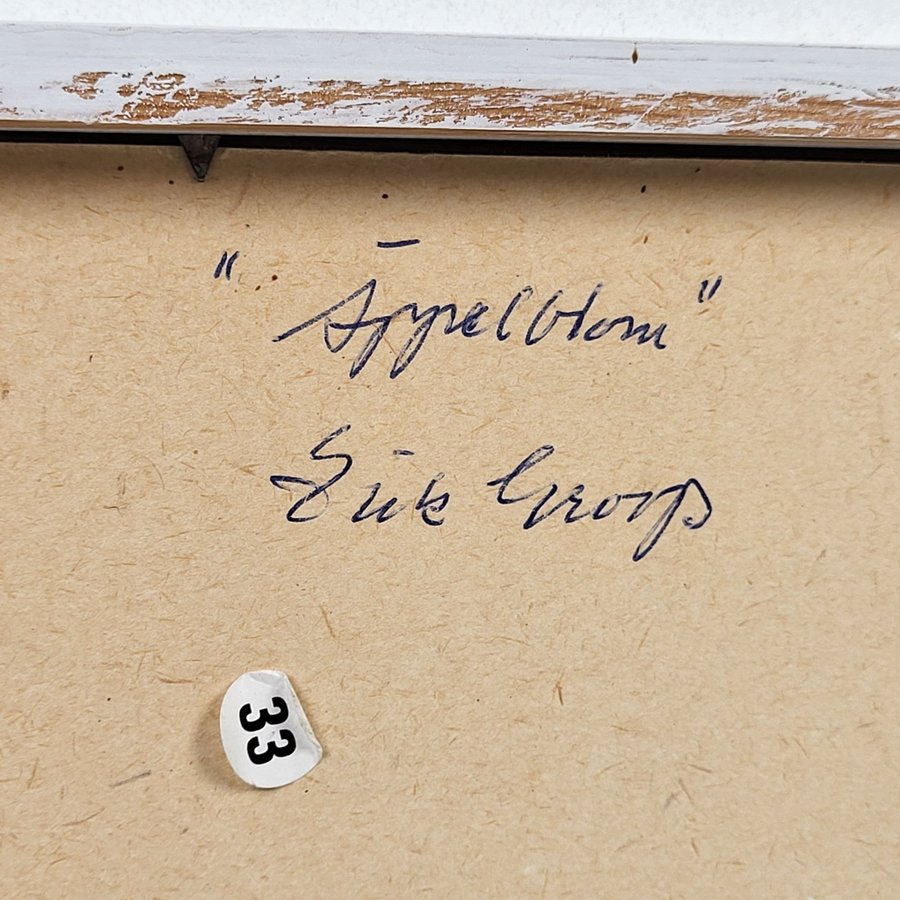 "Äppelblom"
Erik Grorp
33